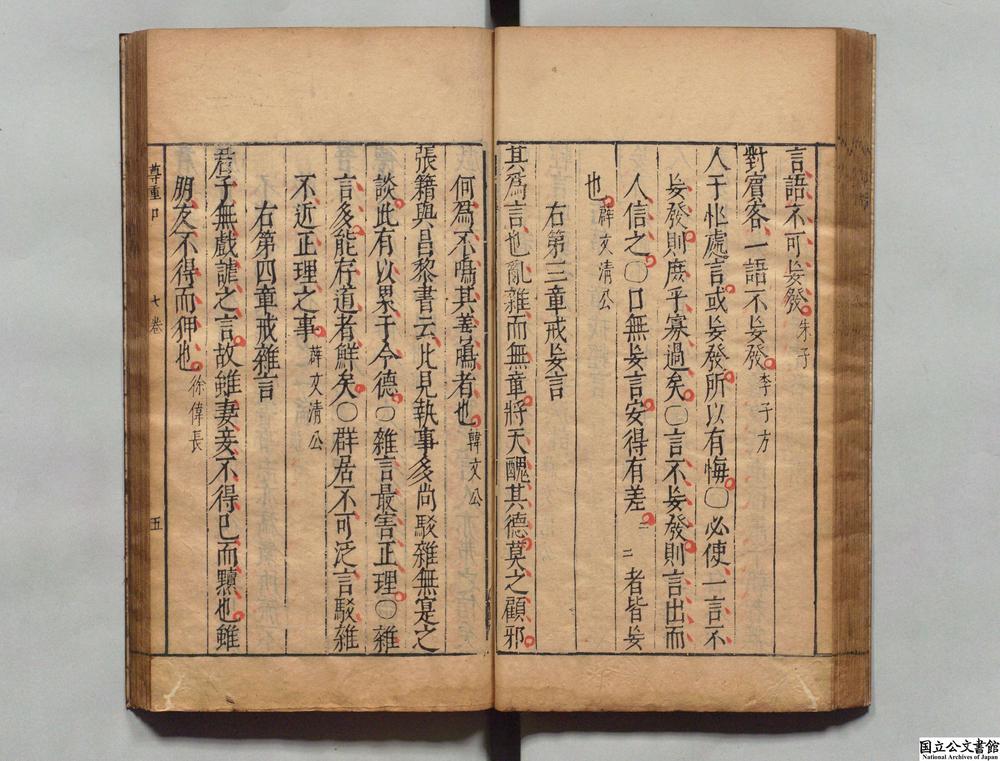 言語不可妄發朱子
對賓客一語不妄發李子方
人于忙處言或妄發所以有悔〇必使一言不
妄發則庶乎寡過矣〇言不妄發則言出而
人信之〇口無妄言安得有差一二者皆妄
也薛文清公
右第三章戒妄言
其為言也亂雜而無章將天醜其德莫之顧邪
何為不鳴其善鳴者也韓文公
張籍與昌黎書云比見執事多尚駁雜無寔之
談此有以累于令德〇雜言最害正理〇雜
言多能存道者鮮矣〇群居不可泛言駁雜
不近正理之事薛文清公
右第四章戒雜言
君子無戲謔之言故雖妻妾不得已而黷也雖
朋友不得而狎也徐偉長
尊重口
七卷
五
国立公文書館
National Archives of Japan